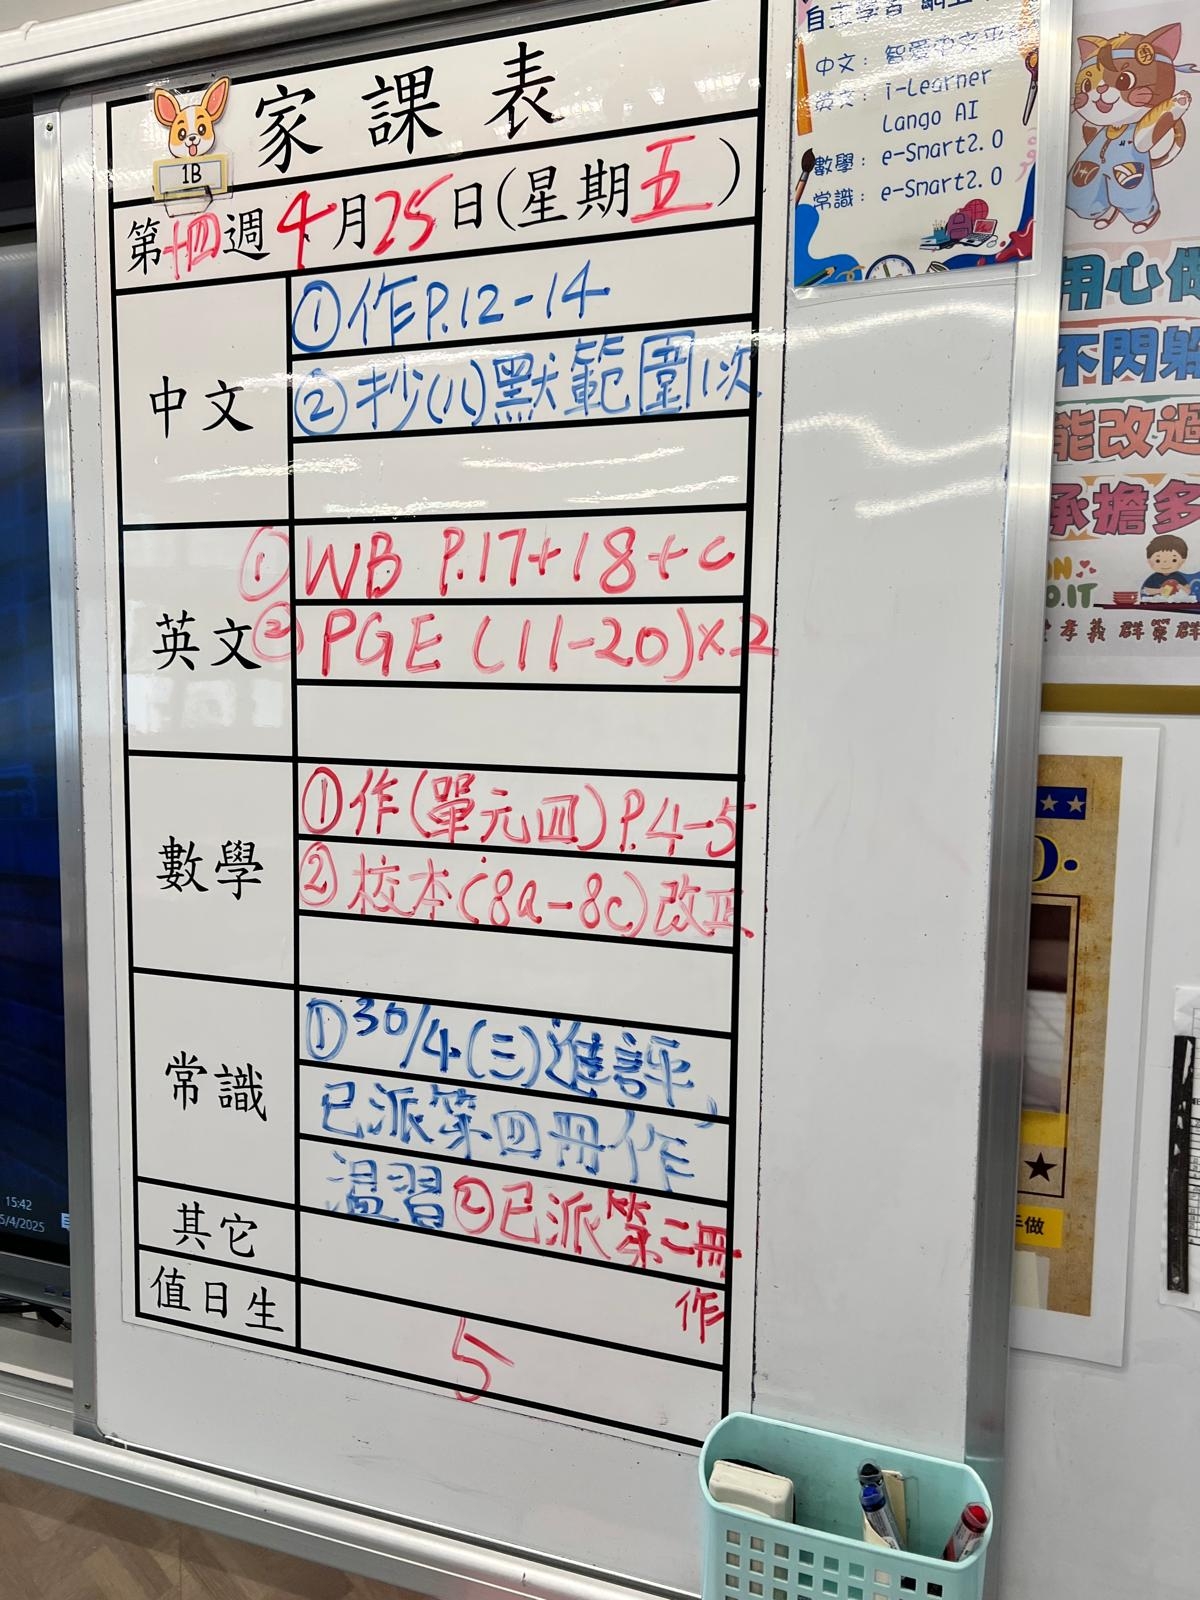 家課表
1B
第十四週4月25日(星期五)
中文
①作P.12-14
②抄(八)默範圍1次
英文
①WB P.17+18+c
②PGE (11-20)×2
數學
①作(單元四)P.4-5
②校本(8a-8c)改正
常識
①30/4(三)進評,
已派第四冊作
溫習②已派第二冊
作
其它
值日生
5
自主學習
中文:智愛中文平
英文:i-Learner
Lango AI
數學:e-Smart2.0
常識:e-Smart2.0
用心做
不閃躲
能改過
承擔多
孝義群策群
15:42
5/4/2025